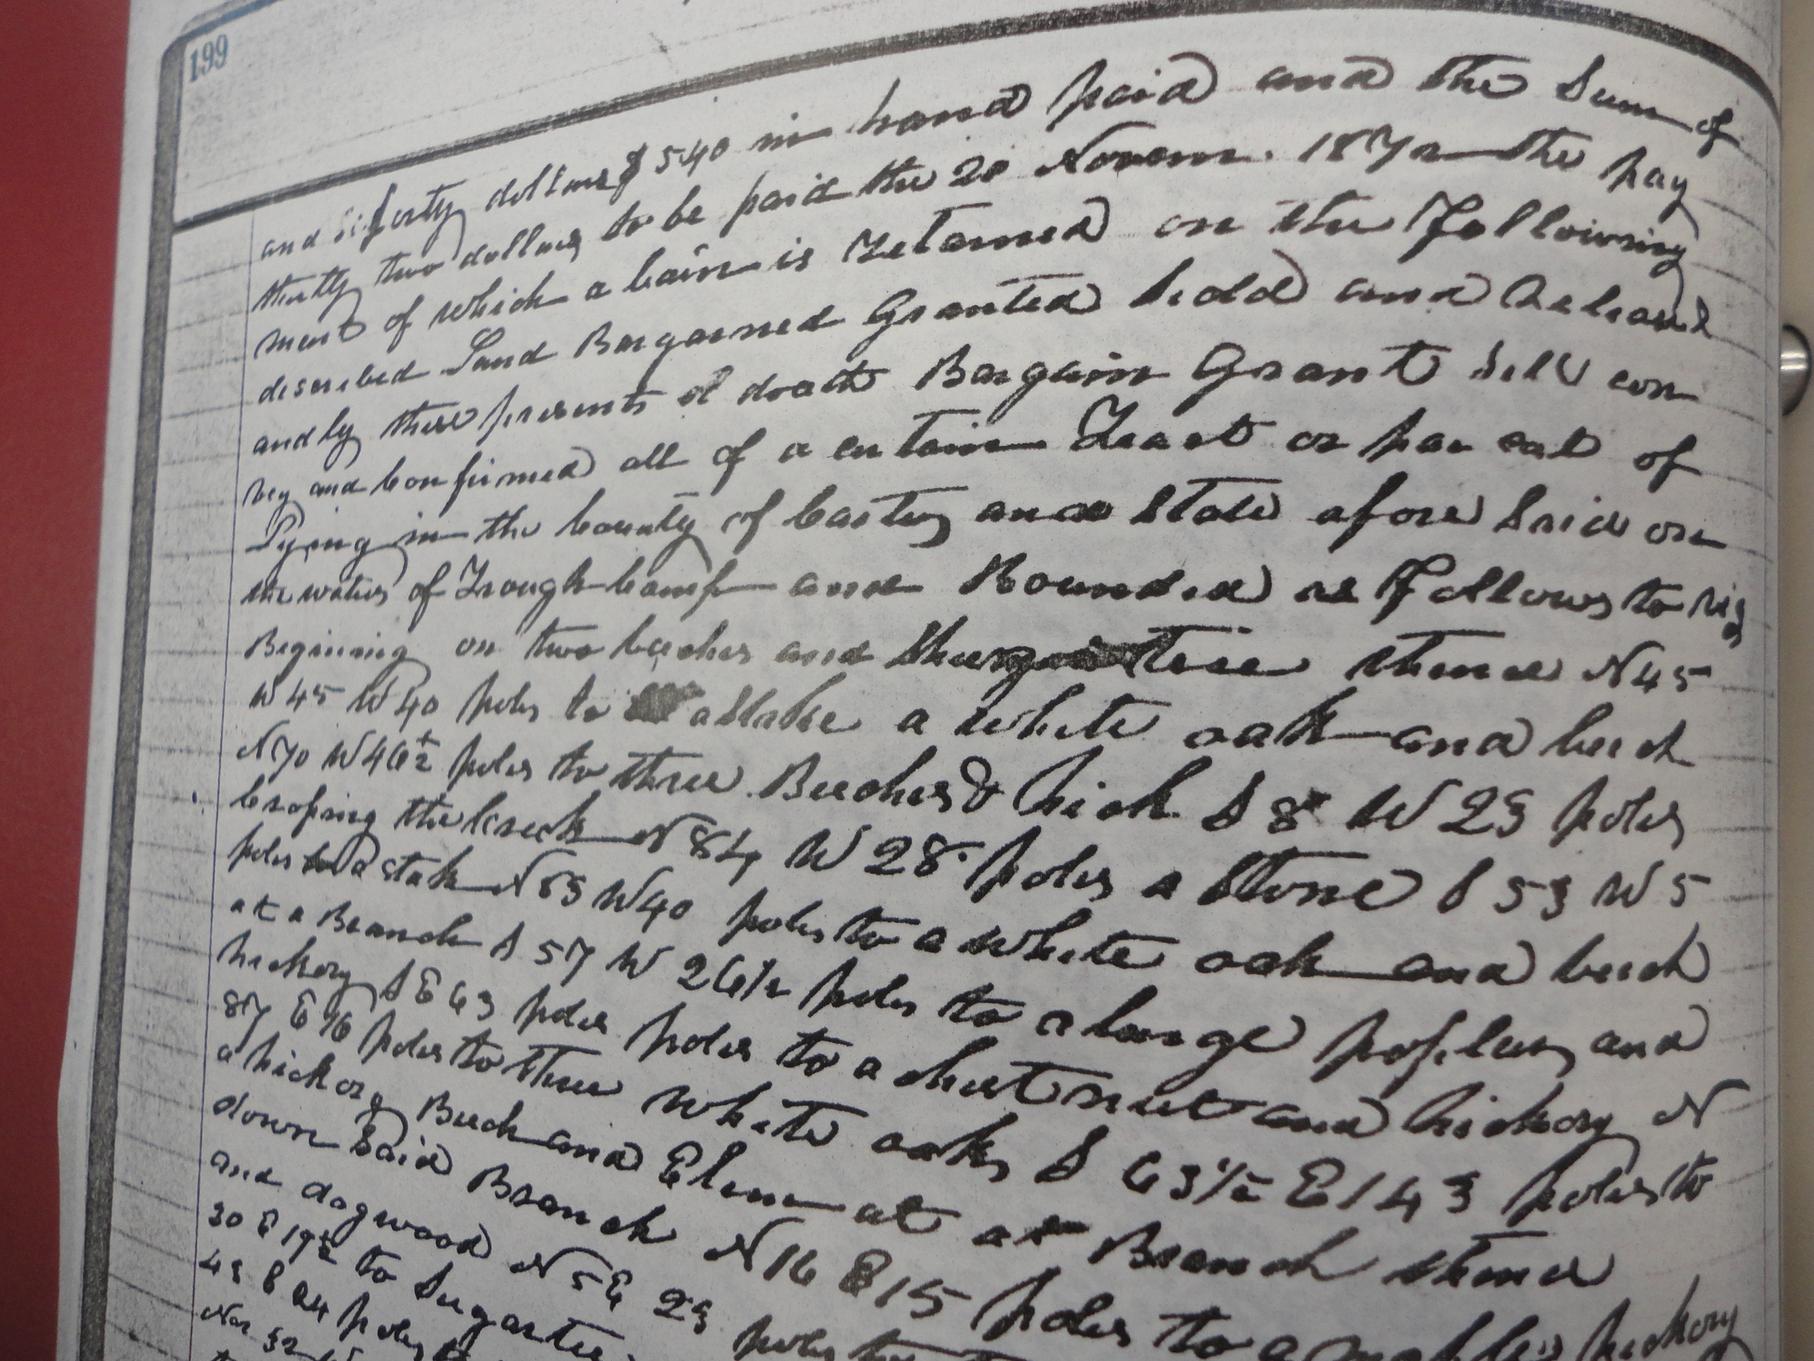 199
and forty dollars $540 in hand paid and the Sum of
thirty two dollars to be paid the 20 Novem. 1872 the pay
ment of which a lain is Retained on the Following
described Land Bargained Granted Sold and Releasd
and by these presents doath Bargain Grant Sell con
vey and Confirmed all of a certain Tract or par cal of
Lying in the County of Casey and State afore Said on
the waters of Trough Camp and Bounded as Follows to
Begining on two beeches and Shugar tree thence N45
W45 W40 poles to a Stake a white oak and beech
N70 W46½ poles to three Beeches & hick S 8 W 23 poles
Crossing the Creek N84 W 28 poles a Stone S 53 W 5
poles to a stak N63 W40 poles to a white oak and beech
at a Branch S 57 W 26½ poles to a large poplar and
hickory S E 63 poles poles to a chestnut and hickory N
87 E 76 poles to three white oaks S 63½ E 143 poles to
a hickory Beech and Elem at a Branch thence
down Said Branch N16 E 15 poles to a hickory
and dogwood N 5 E 23 poles
30 E 19½ to Sugartree
43 E 24 poles